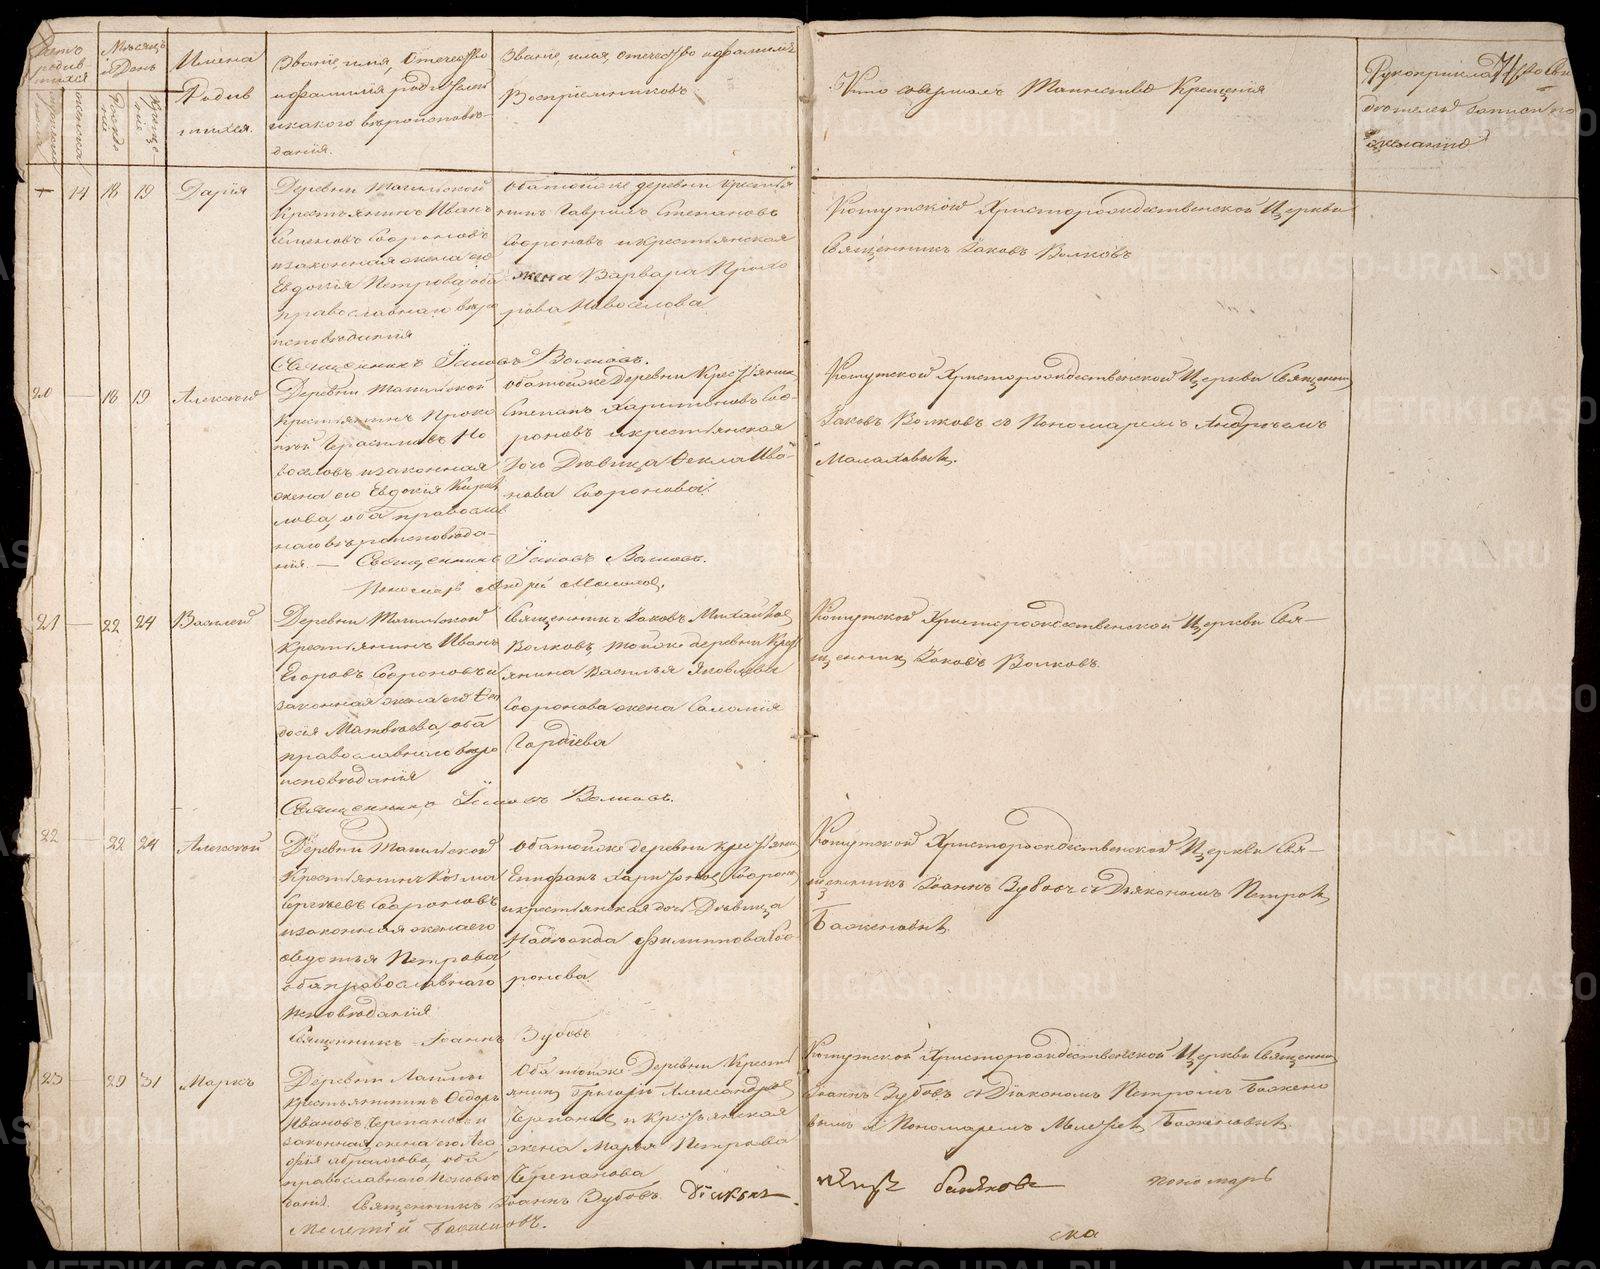 Счетъ родив-
шихся
Мѣсяцъ
и День
Имена
Родив
шихся.
Званіе, имя, Отечество
и фамилія родителей
и какого вѣроисповѣ-
данія.
Званіе, имя, отечество и фамилія
Воспріемниковъ
Кто совершалъ Таинство Крещенія
Рукоприкладство Сви
дѣтелей записи по
желанію
14 18 19 Дарія
Деревни
Крестьянинъ Иванъ
Семеновъ Софроновъ
и законная жена его
Евдокія Петрова, оба
православнаго вѣро
исповѣданія
Священникъ Іаковъ Волковъ.
оба тойже деревни крестья
нинъ Гаврилъ Степановъ
Софроновъ и крестьянская
жена Варвара Прохо
рова Новоселова
Христорождественской Церкви
Священникъ Іаковъ Волковъ
20 18 19 Алексѣй
Деревни
Крестьянинъ Проко
пій Герасимовъ Но
воселовъ и законная
жена его Евдокія Кирил
лова, оба православ
наго вѣроисповѣда-
нія. — Священникъ Іаковъ Волковъ.
Пономарь Андрей Малаховъ.
оба тойже Деревни Крестьянинъ
Степанъ Харитоновъ Соф-
роновъ и крестьянская
дочь Дѣвица Ѳекла Ива-
нова Софронова.
Христорождественской Церкви Священникъ
Іаковъ Волковъ съ Пономаремъ Андреемъ
Малаховымъ.
21 22 24 Василей
Деревни
крестьянинъ Иванъ
Егоровъ Софроновъ и
законная жена его Ѳео
досія Матвѣева, оба
православнаго вѣро
исповѣданія
Священникъ Іаковъ Волковъ.
Священникъ Іаковъ Михайлов
Волковъ, тойже деревни Крест
янина Василья Яковлева
Софронова жена Саломія
Гордѣева
Христорождественской Церкви Свя-
щенникъ Іаковъ Волковъ
22 22 24 Алексѣй
Деревни
Крестьянинъ Козма
Сергѣевъ Софроновъ
и законная жена его
Ѳедотья Петрова,
оба православнаго
исповѣданія
Священникъ Іоаннъ Зубовъ
оба тойже деревни крестьянинъ
Епифанъ Харитоновъ Софроно
и крестьянская дочь Дѣвица
Надежда Филиппова Соф
ронова.
Христорождественской Церкви Свя-
щенникъ Іоаннъ Зубовъ съ Дьякономъ Петромъ
Баженовымъ
23 29 31 Маркъ
Деревни
Крестьянинъ Ѳедоръ
Ивановъ Черепановъ и
законная жена его Ага
фія Абрамова, оба
православнаго исповѣ
данія. Священникъ Іоаннъ Зубовъ Діаконъ
Мелетій Баженовъ.
Оба тойже Деревни Кресть
янинъ Григорій Александровъ
Черепановъ и Крестьянская
жена Марья Петрова
Черепанова
Христорождественской Церкви Священникъ
Іоаннъ Зубовъ съ Діакономъ Петромъ Бажено
вымъ и Пономаремъ Мелетіемъ Баженовымъ.
Петръ Баженовъ пономарь
METRIKI.GASO-URAL.RU